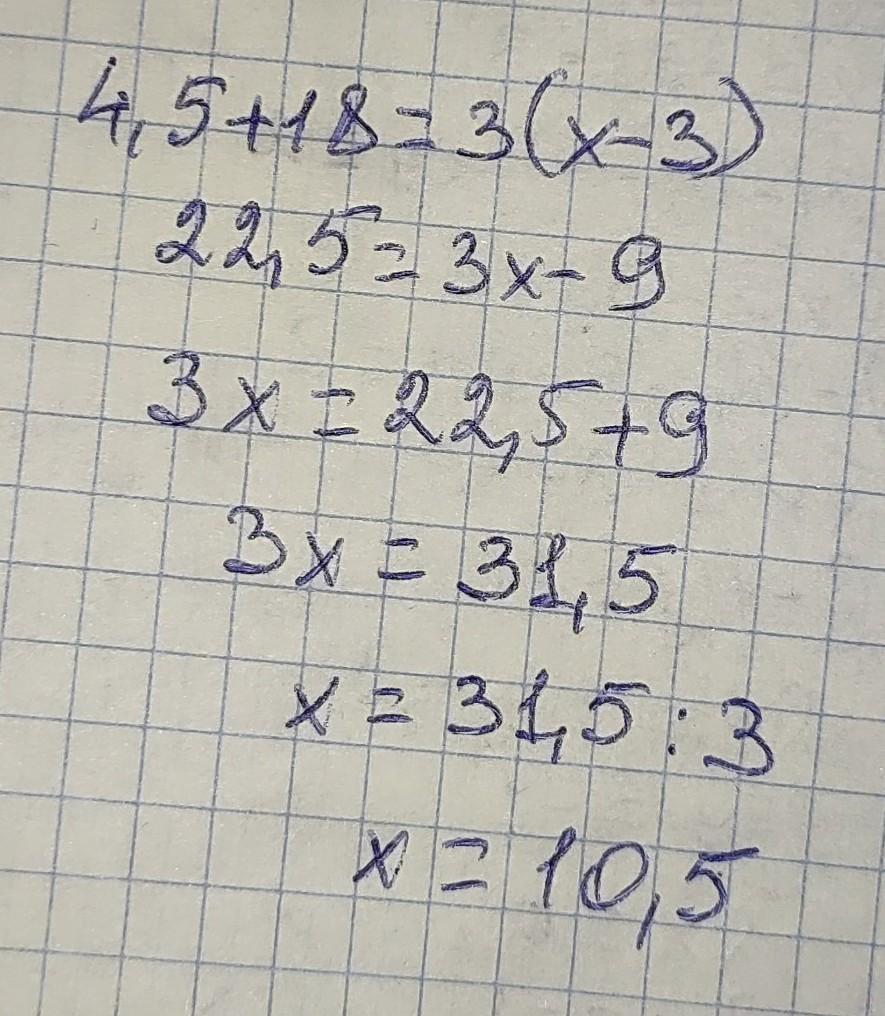 4,5+18=3(x-3)
22,5=3x-9
3x=22,5+9
3x=31,5
x=31,5:3
x=10,5